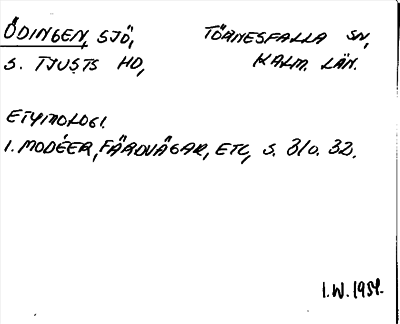 ÖDINGEN, SJÖ, TÖRNESFALLA SN,
S. TJUSTS HD, KALM. LÄN.
ETYMOLOGI.
I. MODÉER, FÄRDVÄGAR, ETC, S. 31 o. 32.
I.W. 1954.